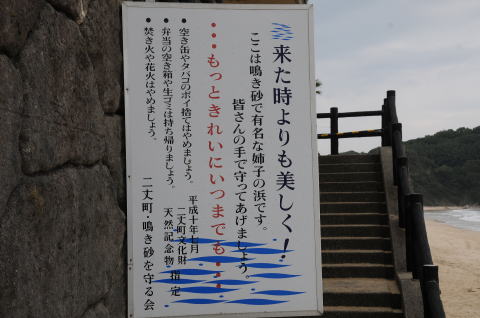 来た時よりも美しく！
ここは鳴き砂で有名な姉子の浜です。
皆さんの手で守ってあげましょう。
・・・もっときれいにいつまでも・・・
● 空き缶やタバコのポイ捨てはやめましょう。
● 弁当の空き箱や生ゴミは持ち帰りましょう。
● 焚き火や花火はやめましょう。
平成十年七月
二丈町文化財
天然記念物 指定
二丈町・鳴き砂を守る会